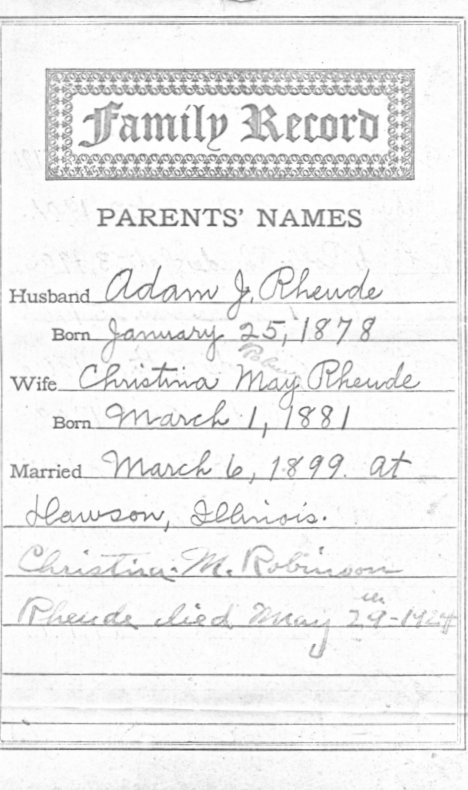 Family Record
PARENTS' NAMES
Husband Adam J. Rheude
Born January 25, 1878
Wife Christina May Rheude
Born March 1, 1881
Married March 6, 1899. at
Dawson, Illinois.
Christina M. Robinson
Rheude died May 29th-